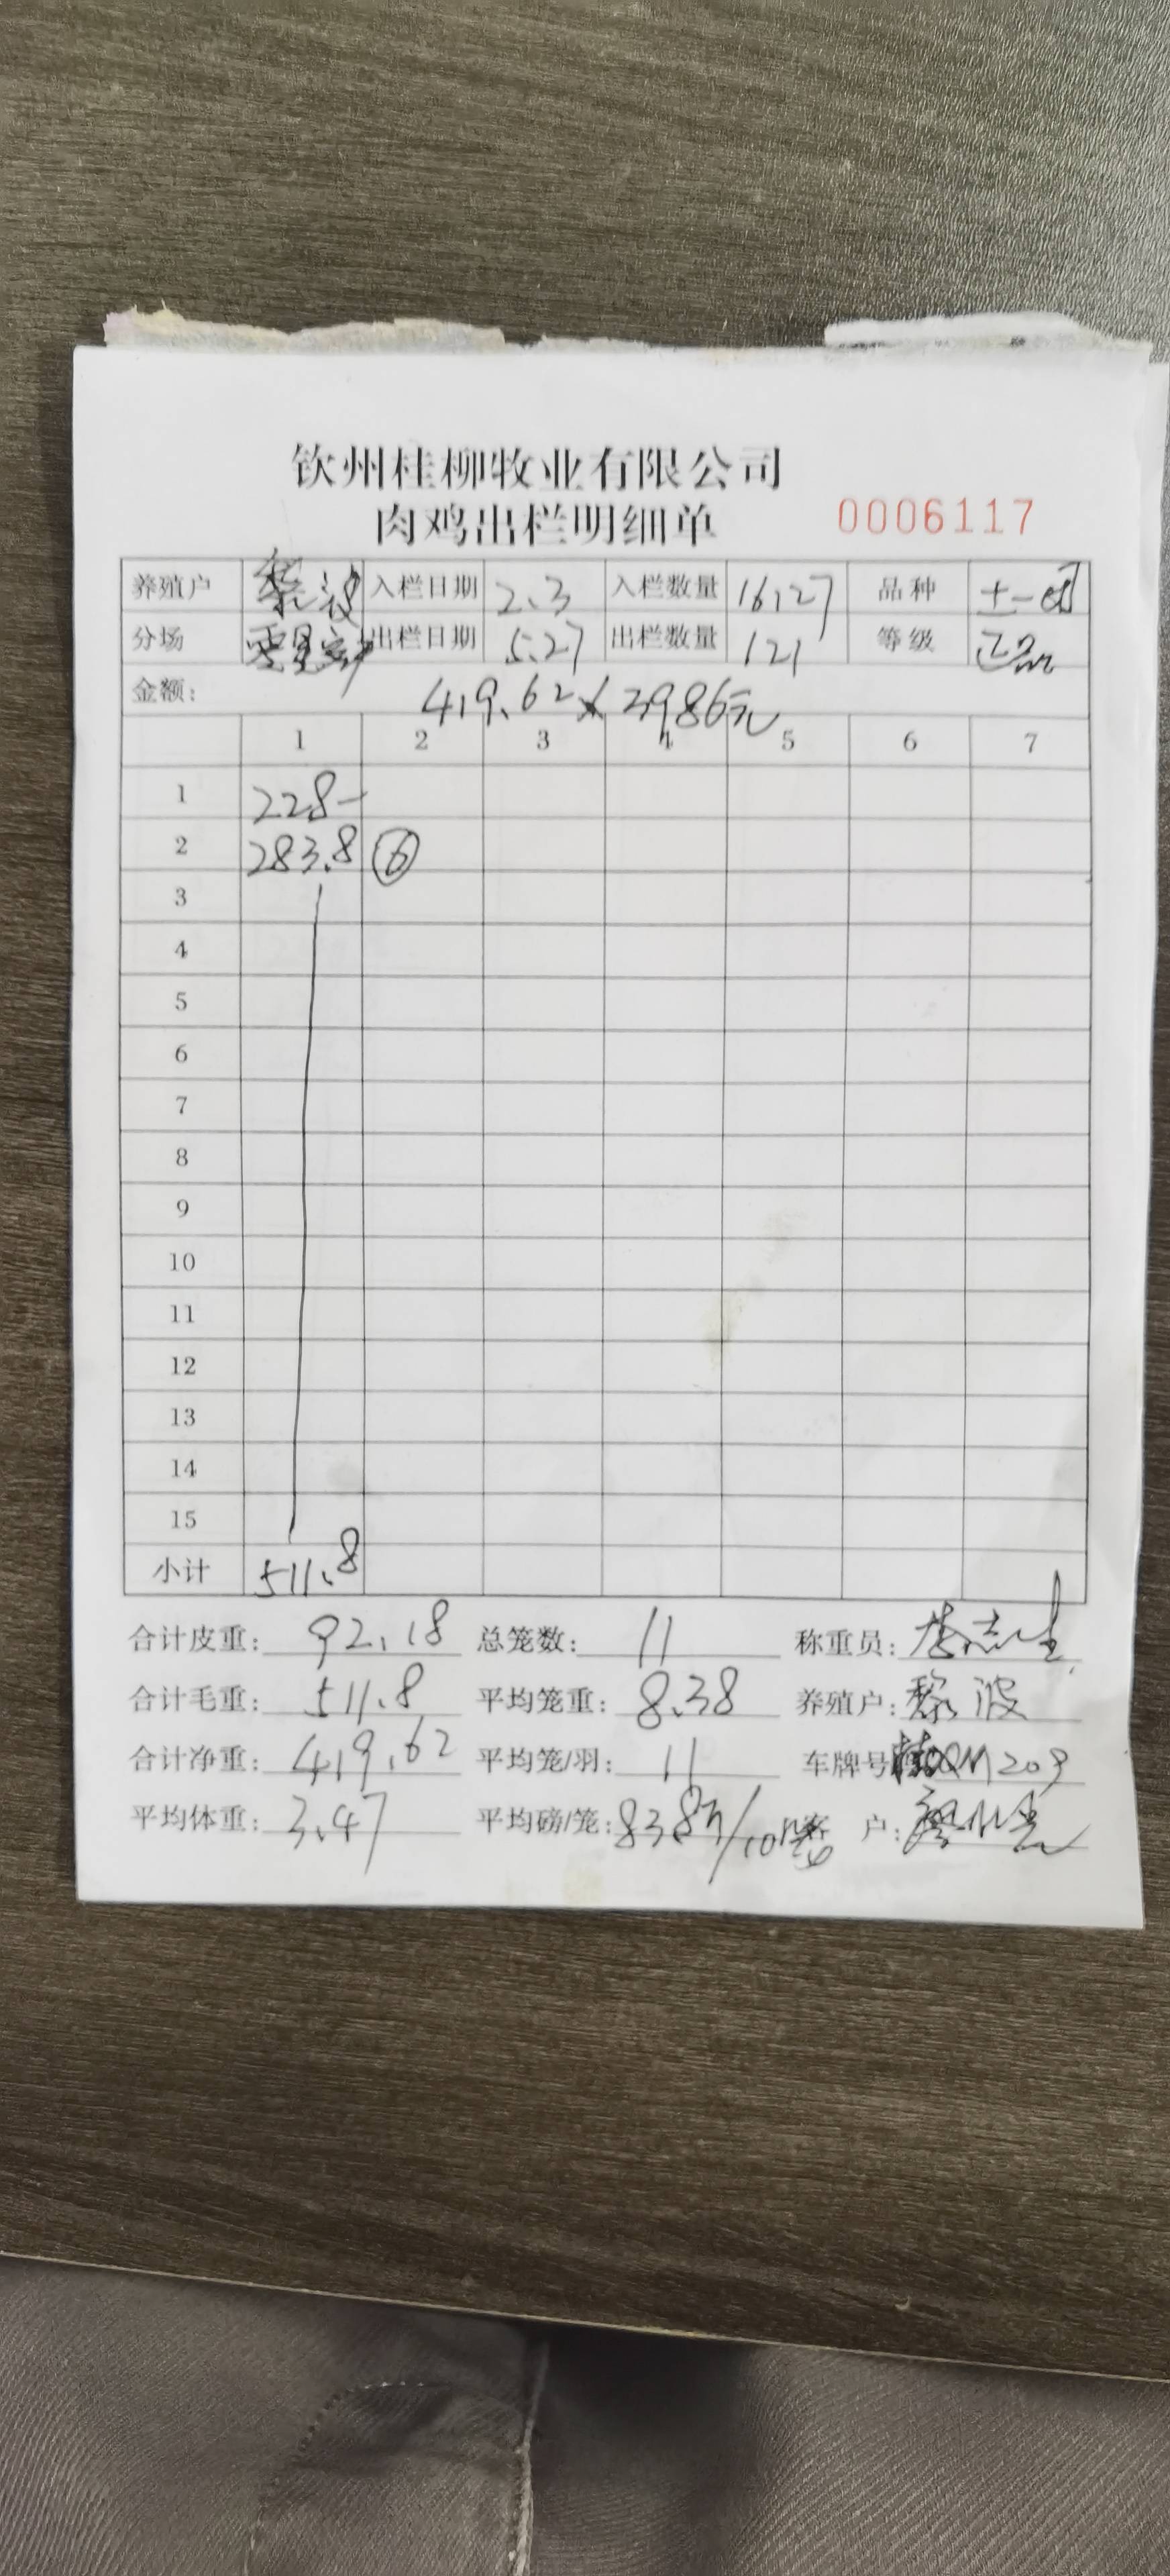 钦州桂柳牧业有限公司
肉鸡出栏明细单 0006117
养殖户 黎波 入栏日期 2.3 入栏数量 16127 品种
分场 出栏日期 5.27 出栏数量 121 等级 正品
金额: 419.62 元
1 2 3 4 5 6 7
1 228-
2 283.8 ⑥
3
4
5
6
7
8
9
10
11
12
13
14
15
小计 511.8
合计皮重: 92.18 总笼数: 11 称重员:
合计毛重: 511.8 平均笼重: 8.38 养殖户: 黎波
合计净重: 419.62 平均笼/羽: 11 车牌号
平均体重: 3.47 平均磅/笼: 客户: